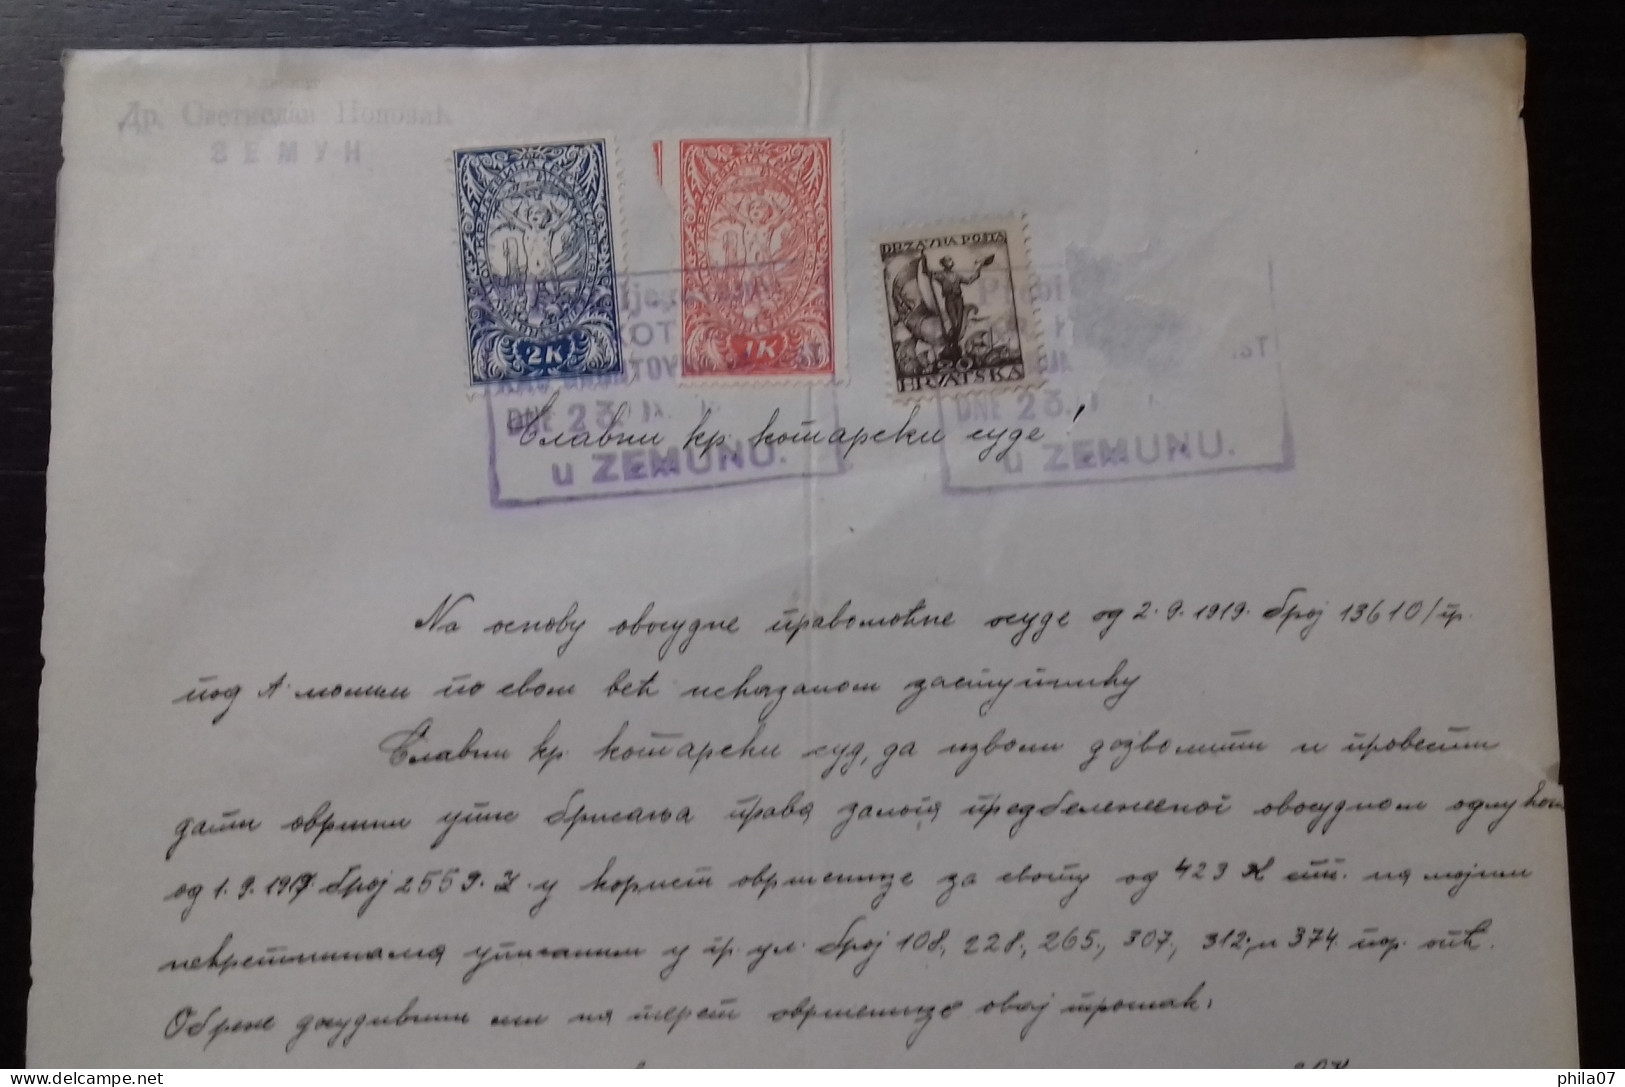 Др. Светислав Поповић
ЗЕМУН
2К
1К
DRŽAVNA POŠTA
20
HRVATSKA
DNE 23. IX.
u ZEMUNU.
DNE 23.
u ZEMUNU.
Славни кр. котарски суде!
На основу овосудне правомоћне осуде од 2.9.1919. број 13610/гр.
под А. молим по свом већ исказаном заступнику
Славни кр. котарски суд, да изволи дозволити и провести
дати овршни упис брисања права залога предбележеног овосудном одлуком
од 1.9.1917 број 2559. у корист овршенице за своту од 423 К на мојим
некретнинама уписаним у гр. ул. број 108., 228., 265., 307., 312. и 374. пор. опћ.
Обреке досудивши ми на терет овршенице овај трошак:
phila07